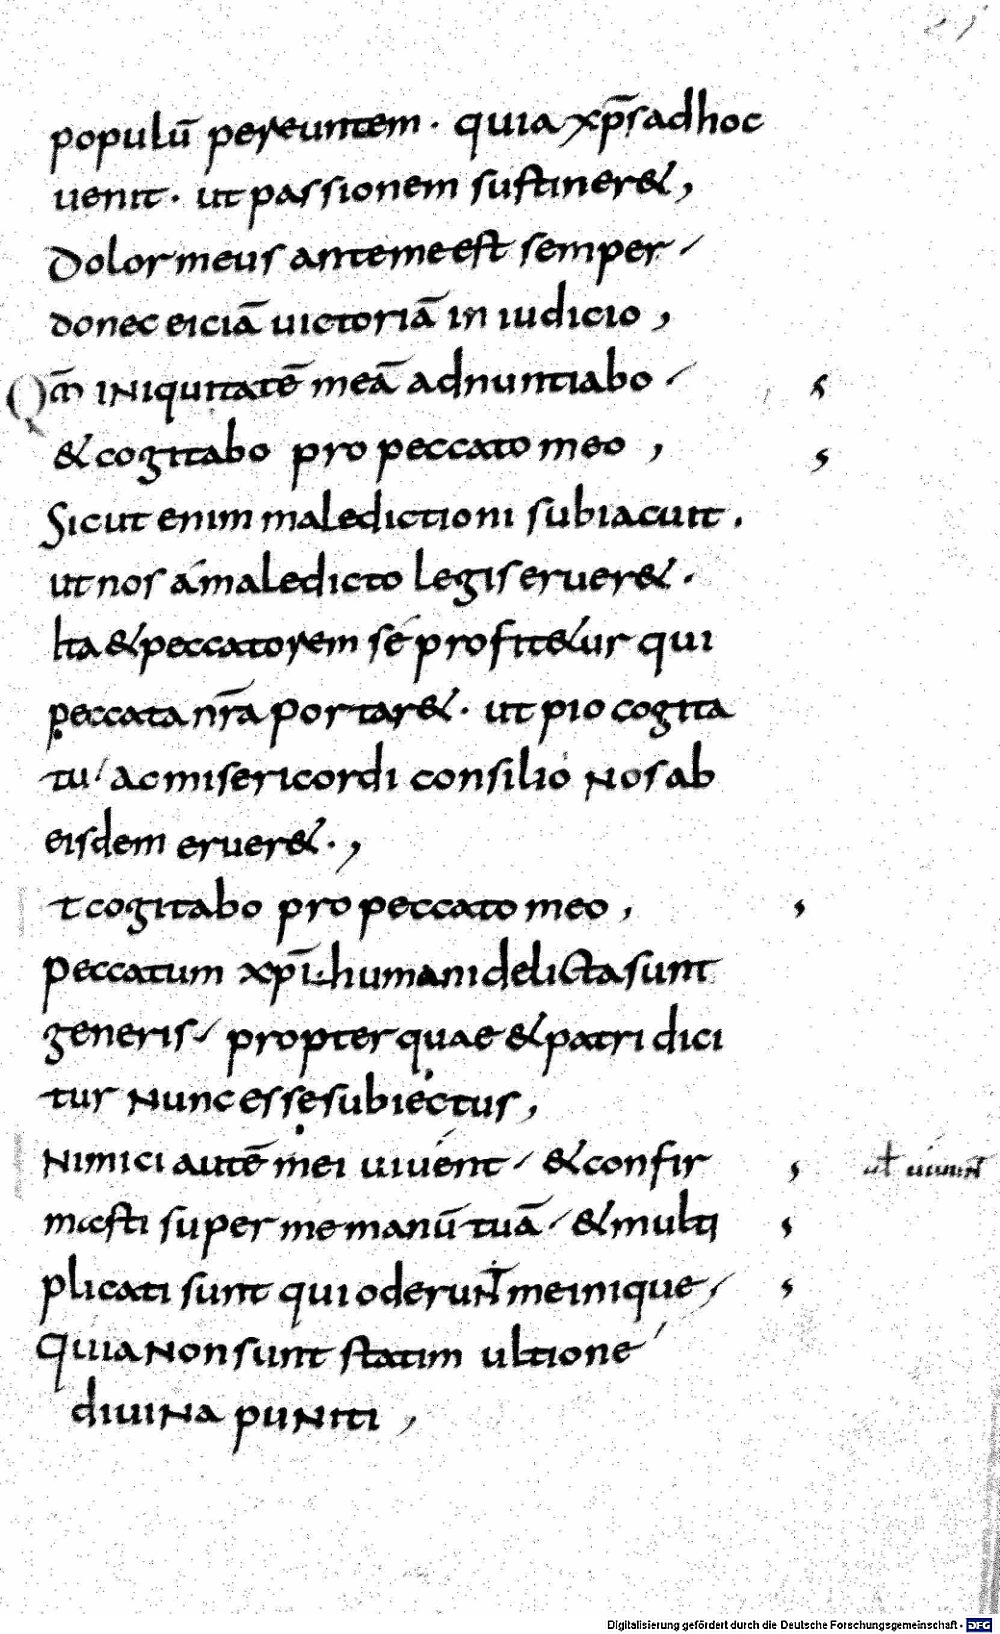 populū pereuntem · quia xp̄s ad hoc
uenit · ut passionem sustiner&,
Dolor meus ante me est semper /
donec eiciā uictoriā in iudicio ,
Qm̄ iniquitatē meā adnuntiabo /
& cogitabo pro peccato meo ,
Sicut enim maledictioni subiacuit .
ut nos á maledicto legis eruer& .
Ita & peccatorem sé profit&ur qui
peccata nr̄a portar& · ut pio cogita
tu / ac misericordi consilio nos ab
eisdem eruer& · ,
t cogitabo pro peccato meo ,
Peccatum xp̄i · humani delicta sunt
generis / propter quae & patri dici
tur nunc esse subiectus ,
Nimici autē mei uiuent / & confir
mati super me manū tuā / & multi
plicati sunt qui oderunt me inique /
Quia non sunt statim ultione
diuina puniti ,
Digitalisierung gefördert durch die Deutsche Forschungsgemeinschaft - DFG